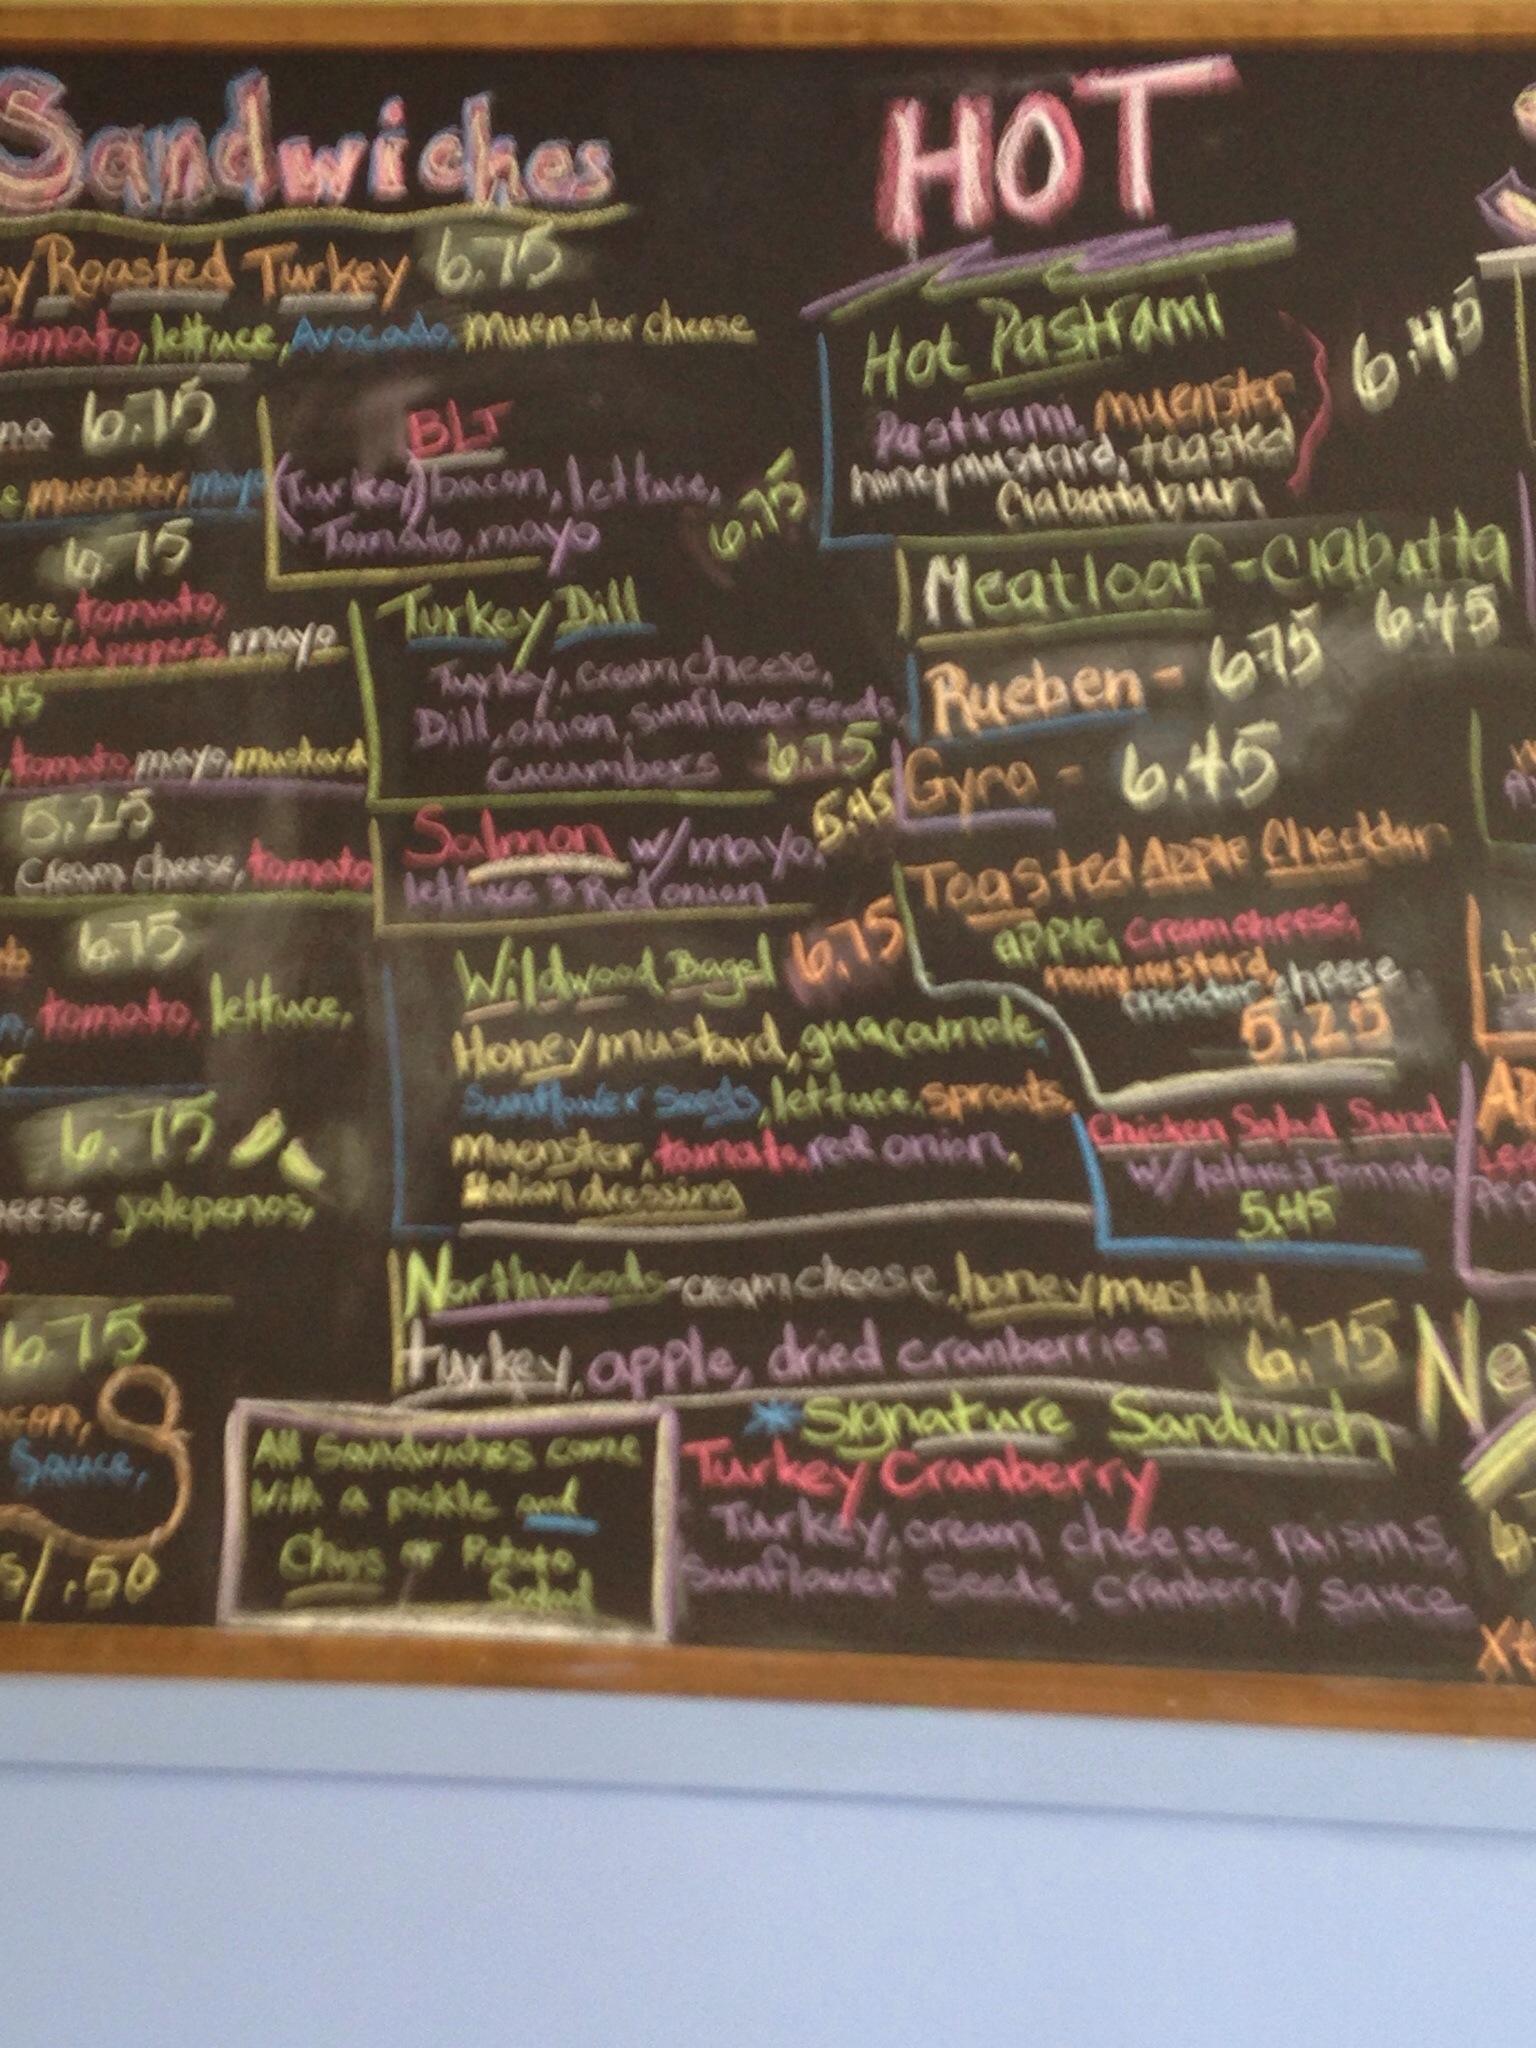 Sandwiches
Roasted Turkey 6.75
Tomato, lettuce, Avocado, muenster cheese
6.75
muenster, mayo
6.75
tomato,
red peppers, mayo
tomato, mayo, mustard
5.25
cream cheese, tomato
6.75
tomato, lettuce,
6.75
jalepenos,
6.75
Sauce,
.50
BLT
(Turkey) bacon, lettuce,
Tomato, mayo 6.75
Turkey Dill
Turkey, cream cheese,
Dill, onion, sunflower seeds,
cucumbers 6.75
Salmon w/mayo, 5.45
lettuce & Red onion
Wildwood Bagel 6.75
Honey mustard, guacamole,
Sunflower seeds, lettuce, sprouts,
muenster, tomato, red onion,
Italian dressing
Northwoods - cream cheese, honey mustard,
turkey, apple, dried cranberries 6.75
All Sandwiches come
With a pickle and
Chips or Potato
Salad
HOT
Hot Pastrami 6.45
Pastrami, muenster
honey mustard, toasted
Ciabatta bun
Meatloaf - Ciabatta
6.45
Rueben - 6.75
Gyro - 6.45
Toasted Apple Cheddar
apple, cream cheese,
honey mustard,
cheddar cheese
5.25
Chicken Salad Sand.
w/ lettuce & Tomato
5.45
*Signature Sandwich
Turkey Cranberry
Turkey, cream cheese, raisins,
Sunflower Seeds, cranberry sauce